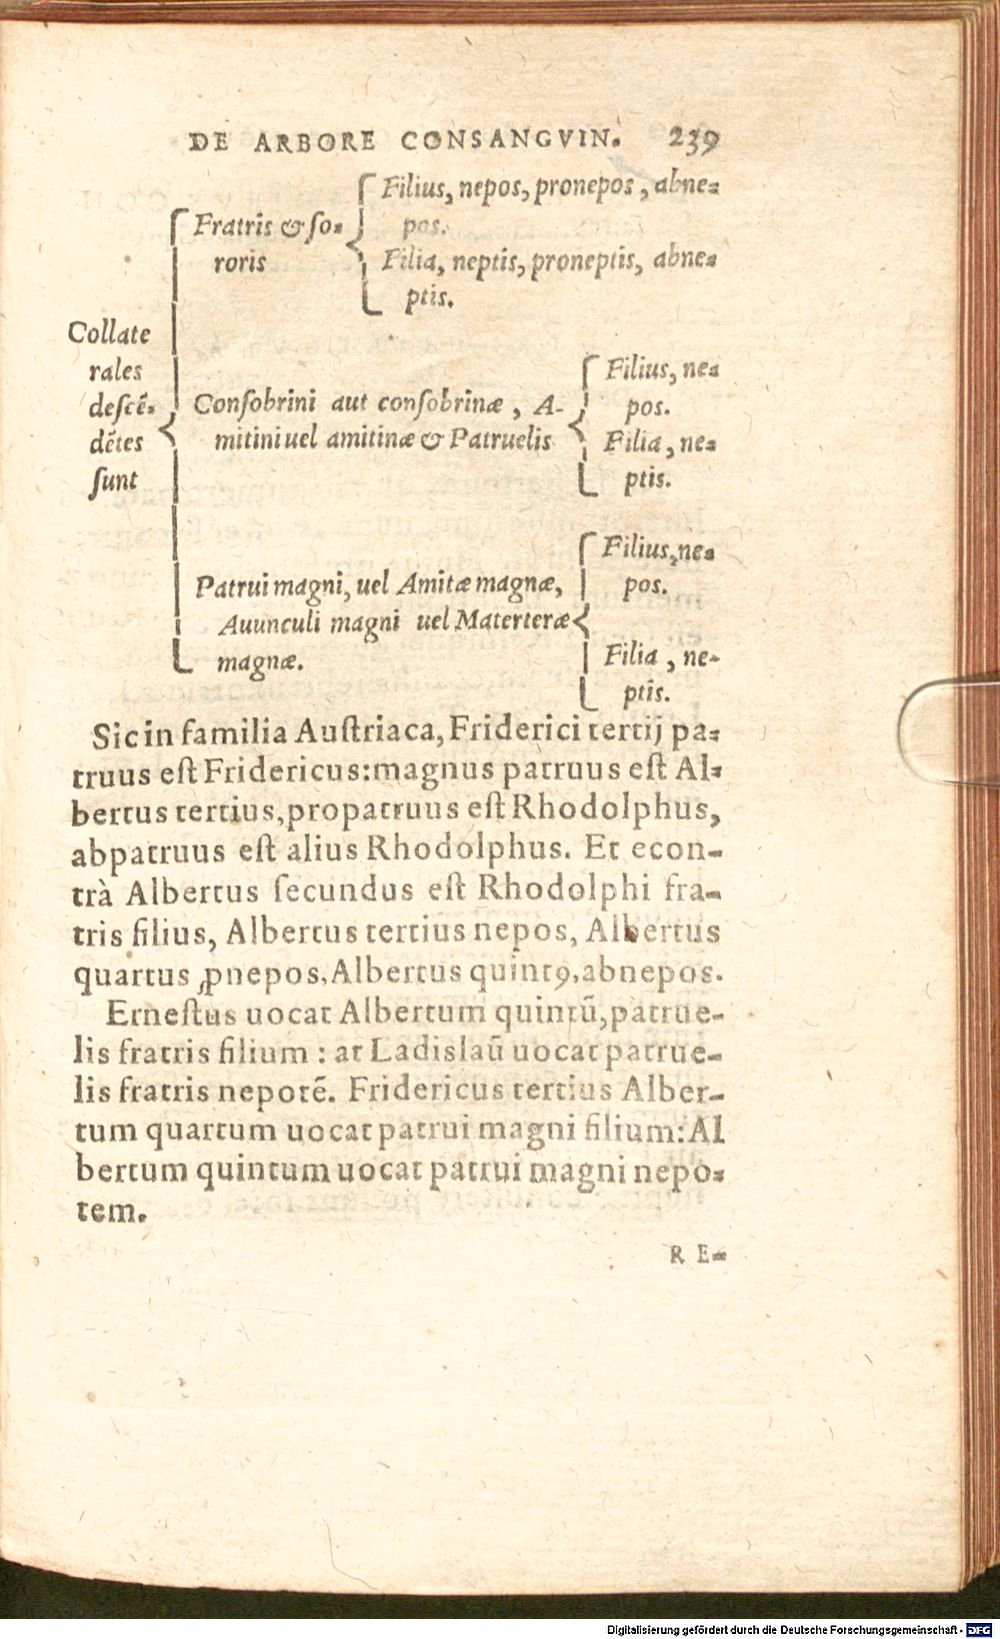 DE ARBORE CONSANGVIN. 239
Collate
rales
deſcē-
dētes
ſunt
Fratris & ſo-
roris
Filius, nepos, pronepos, abne-
pos.
Filia, neptis, proneptis, abne-
ptis.
Conſobrini aut conſobrinæ, A-
mitini uel amitinæ & Patruelis
Filius, ne-
pos.
Filia, ne-
ptis.
Patrui magni, uel Amitæ magnæ,
Auunculi magni uel Materteræ
magnæ.
Filius, ne-
pos.
Filia, ne-
ptis.
Sic in familia Auſtriaca, Friderici tertij pa-
truus eſt Fridericus: magnus patruus eſt Al-
bertus tertius, propatruus eſt Rhodolphus,
abpatruus eſt alius Rhodolphus. Et econ-
trà Albertus ſecundus eſt Rhodolphi fra-
tris filius, Albertus tertius nepos, Albertus
quartus ꝓnepos, Albertus quintꝰ, abnepos.
Erneſtus uocat Albertum quintū, patrue-
lis fratris filium: at Ladislaū uocat patrue-
lis fratris nepotē. Fridericus tertius Alber-
tum quartum uocat patrui magni filium: Al
bertum quintum uocat patrui magni nepo-
tem.
R E-
Digitalisierung gefördert durch die Deutsche Forschungsgemeinschaft - DFG